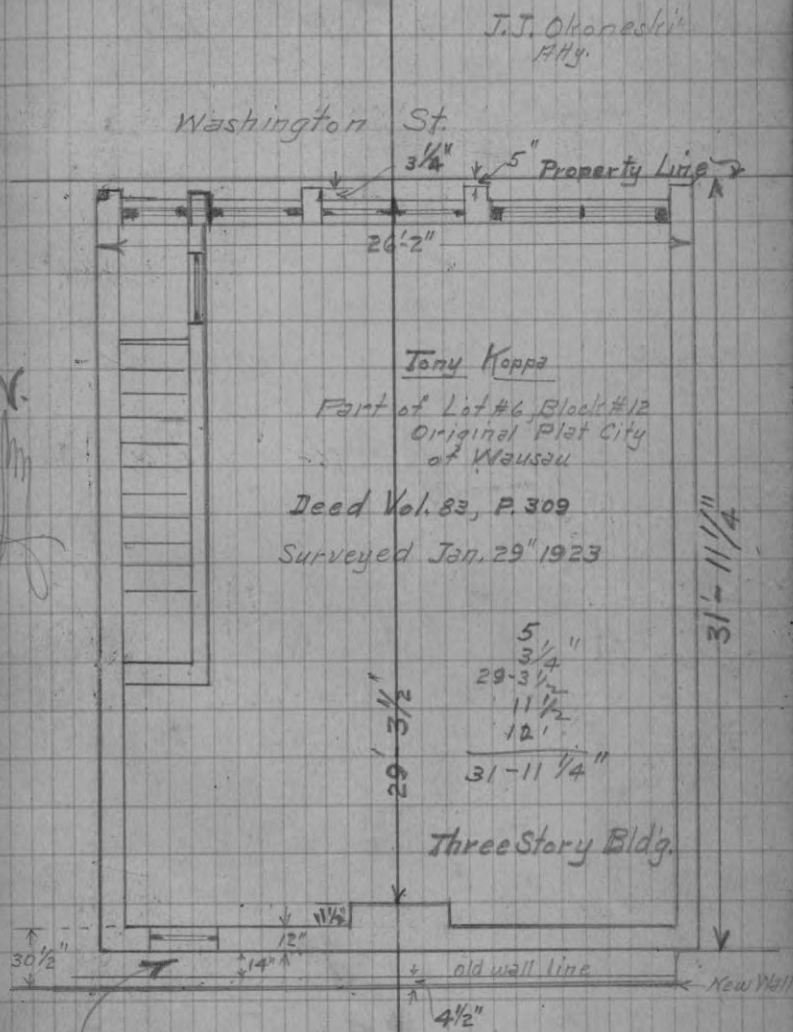 J.J. Okoneski
Atty.
Washington St.
3 1/4"
5"
Property Line
26'-2"
Tony Koppa
Part of Lot #6, Block #12
Original Plat City
of Wausau
Deed Vol. 83, P. 309
Surveyed Jan. 29" 1923
31'-11 1/4"
5
3 1/4"
29-3 1/2
11 1/2
12"
31-11 1/4"
29' 3 1/2"
Three Story Bldg.
11 1/2"
12"
30 1/2"
14"
old wall line
New Wall
4 1/2"